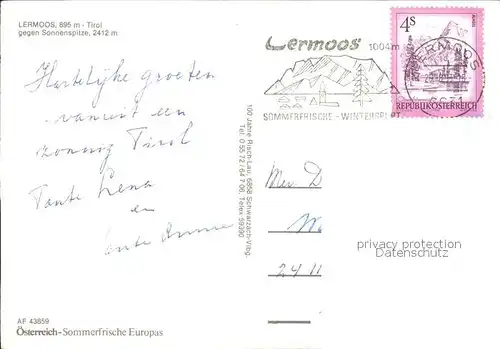 LERMOOS, 995 m - Tirol
gegen Sonnenspitze, 2412 m
Hartelijke groeten
vanuit een
zonnig Tirol
Tante Lena
en
tante Anna
AF 43859
Österreich-Sommerfrische Europas
100 Jahre Risch-Lau, 6858 Schwarzach-Vlbg.
Tel. 0 55 72 / 64 7 06, Telex 59390
Lermoos 1004m
SOMMERFRISCHE - WINTERSPORT
LERMOOS
6631
4 S
REPUBLIK ÖSTERREICH
Mev D
24 
privacy protection
Datenschutz